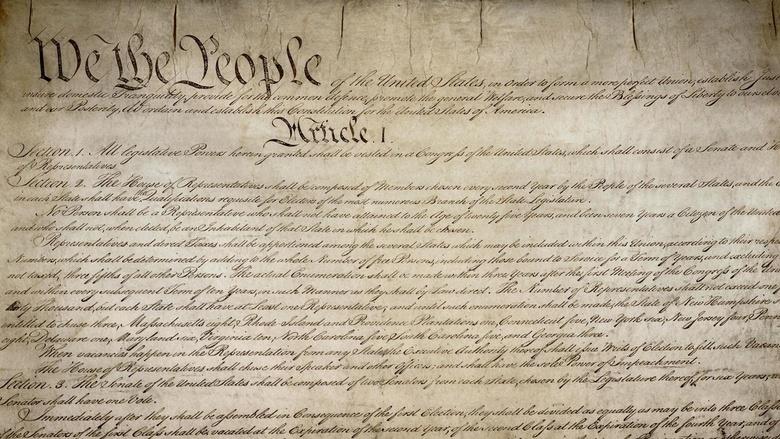 We the People of the United States, in Order to form a more perfect Union, establish Just
insure domestic Tranquility, provide for the common defence, promote the general Welfare, and secure the Blessings of Liberty to oursel
and our Posterity, do ordain and establish this Constitution for the United States of America.
Article. I.
Section. 1. All legislative Powers herein granted shall be vested in a Congress of the United States, which shall consist of a Senate and
of Representatives.
Section. 2. The House of Representatives shall be composed of Members chosen every second Year by the People of the several States, and the
in each State shall have the Qualifications requisite for Electors of the most numerous Branch of the State Legislature.
No Person shall be a Representative who shall not have attained to the Age of twenty five Years, and been seven Years a Citizen of the United
and who shall not, when elected, be an Inhabitant of that State in which he shall be chosen.
Representatives and direct Taxes shall be apportioned among the several States which may be included within this Union, according to their
Numbers, which shall be determined by adding to the whole Number of free Persons, including those bound to Service for a Term of Years, and excluding
not taxed, three fifths of all other Persons. The actual Enumeration shall be made within three Years after the first Meeting of the Congress of the
and within every subsequent Term of ten Years, in such Manner as they shall by Law direct. The Number of Representatives shall not exceed one
thirty Thousand, but each State shall have at Least one Representative; and until such enumeration shall be made, the State of New Hampshire
entitled to chuse three, Massachusetts eight, Rhode Island and Providence Plantations one, Connecticut five, New York six, New Jersey four, Penn
eight, Delaware one, Maryland six, Virginia ten, North Carolina five, South Carolina five, and Georgia three.
When vacancies happen in the Representation from any State, the Executive Authority thereof shall issue Writs of Election to fill such Vacan
The House of Representatives shall chuse their Speaker and other Officers; and shall have the sole Power of Impeachment.
Section. 3. The Senate of the United States shall be composed of two Senators from each State, chosen by the Legislature thereof, for six Years; a
Senator shall have one Vote.
Immediately after they shall be assembled in Consequence of the first Election, they shall be divided as equally as may be into three Class
of the Senators of the first Class shall be vacated at the Expiration of the second Year, of the second Class at the Expiration of the fourth Year, and